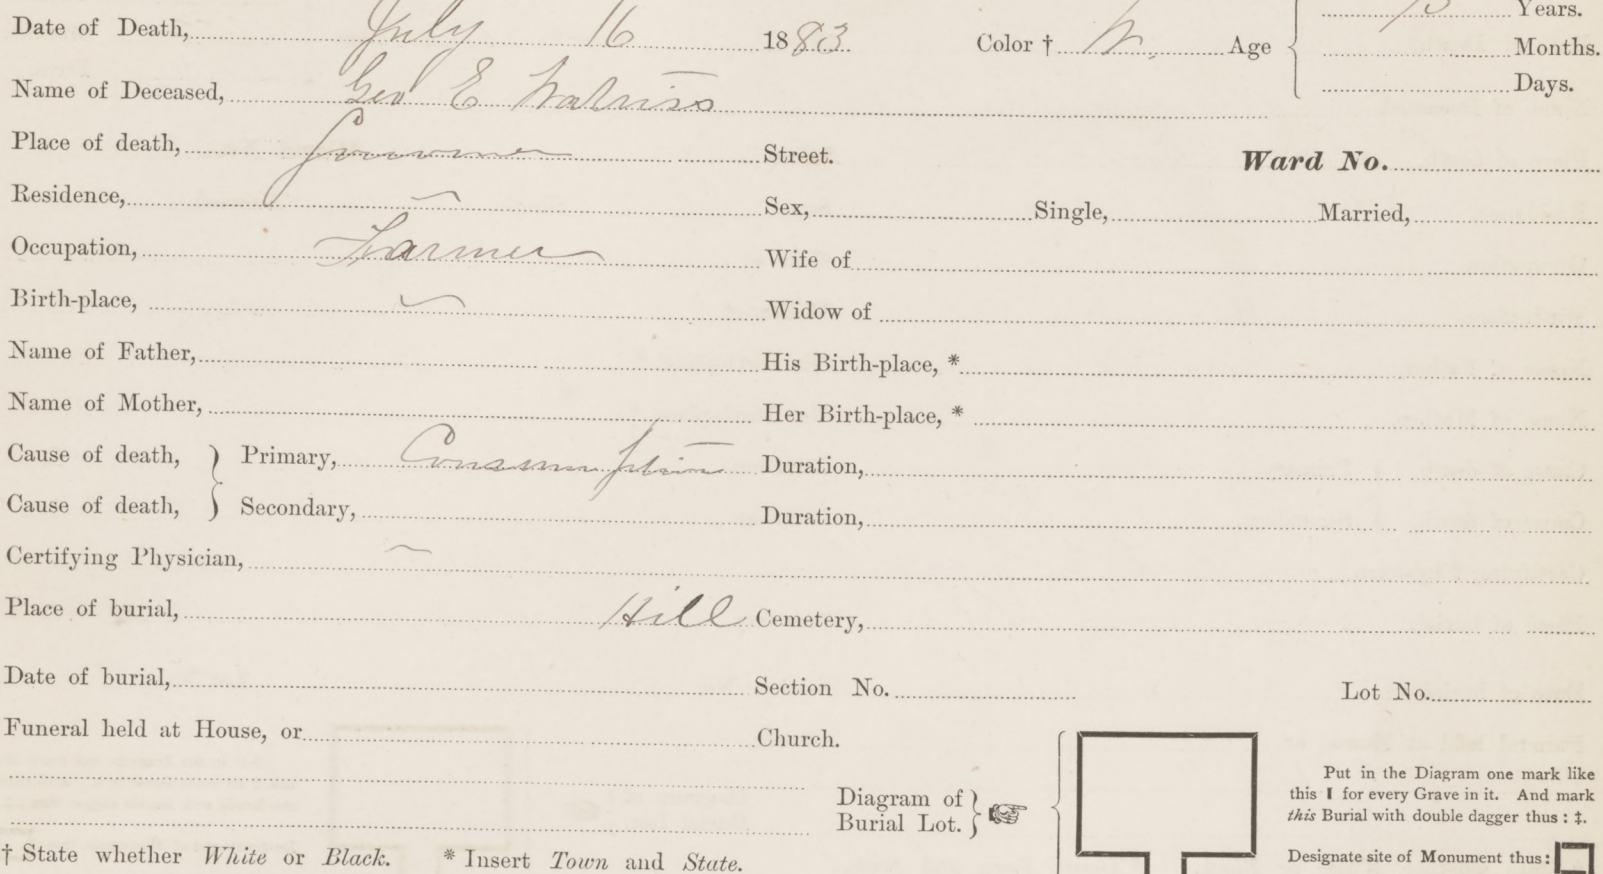 Date of Death, July 16 1883. Color † W. Age Years.
Months.
Days.
Name of Deceased, Geo E Watriss
Place of death, Street. Ward No.
Residence, Sex, Single, Married,
Occupation, Farmer Wife of
Birth-place, Widow of
Name of Father, His Birth-place, *
Name of Mother, Her Birth-place, *
Cause of death, } Primary, Consumption Duration,
Cause of death, } Secondary, Duration,
Certifying Physician,
Place of burial, Hill Cemetery,
Date of burial, Section No. Lot No.
Funeral held at House, or Church.
Diagram of
Burial Lot. }
Put in the Diagram one mark like
this I for every Grave in it. And mark
this Burial with double dagger thus : ‡.
Designate site of Monument thus:
† State whether White or Black. * Insert Town and State.